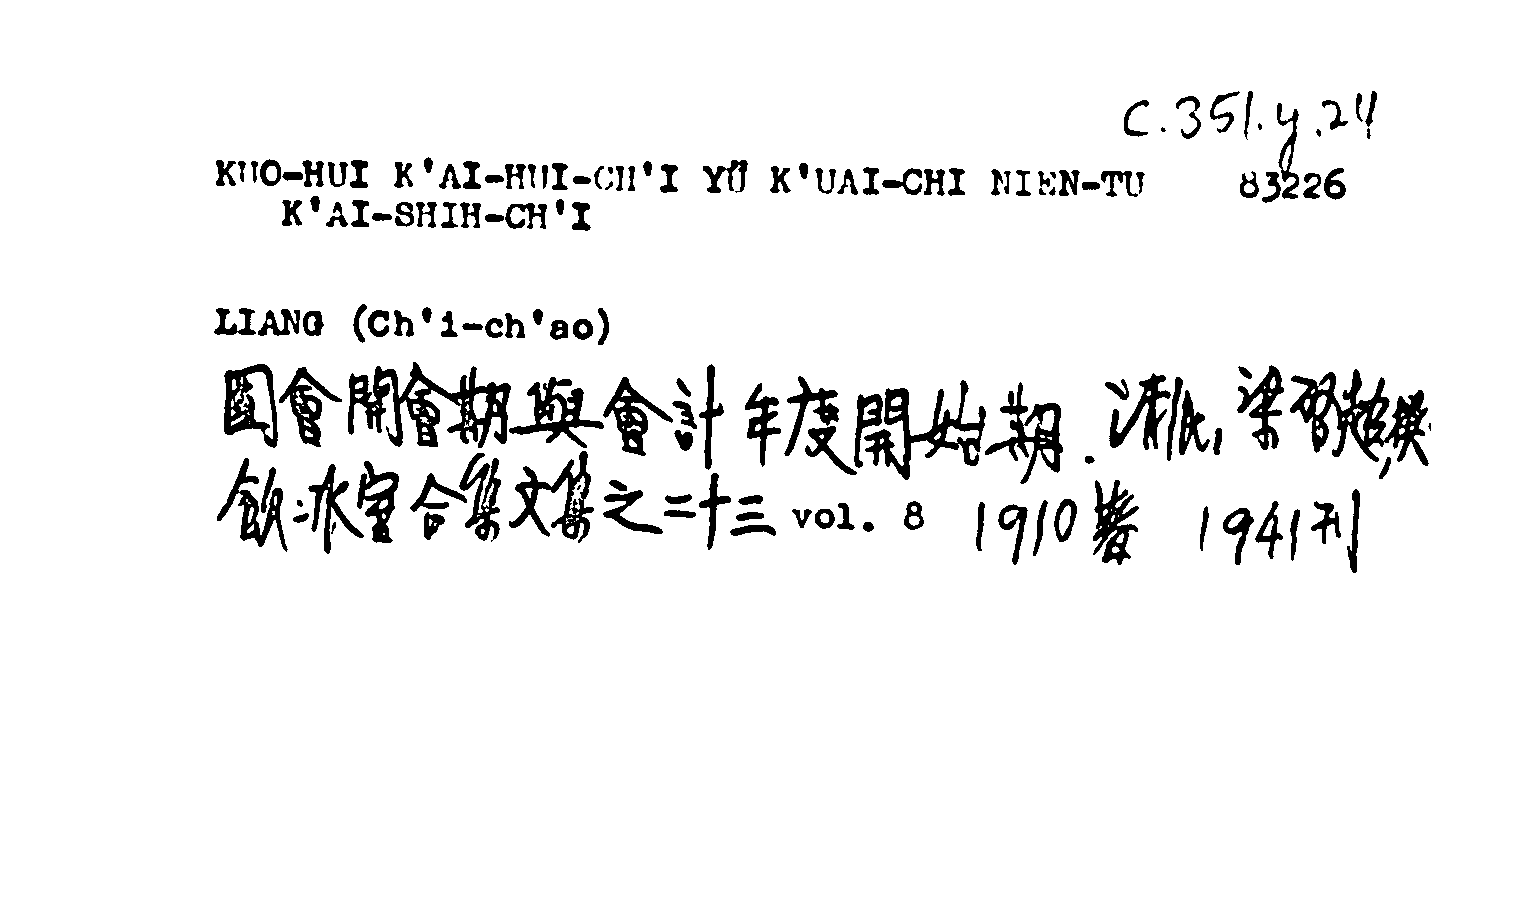 C.351.y.24
KUO-HUI K'AI-HUI-CH'I YÜ K'UAI-CHI NIEN-TU 83226
K'AI-SHIH-CH'I
LIANG (Ch'i-ch'ao)
國會開會期與會計年度開始期. 清民, 梁啓超撰.
飲冰室合集文集之二十三 vol. 8 1910 1941刊